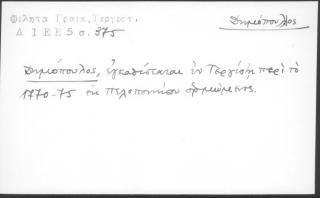 Φίλητα Γραικ. Τεργεστ.
Δ Ι Ε Ε 5 σ. 375
Δημόπουλος
Δημόπουλος, ἐγκαθίσταται ἐν Τεργέστῃ περὶ τὸ
1770-75 ἐκ Πελοποννήσου ὁρμώμενος.